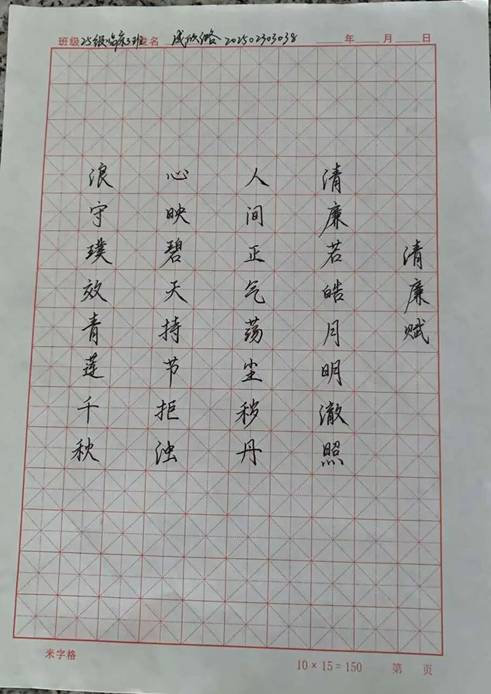 班级 25级临床3班 姓名 成欣璐 20250230303038 年 月 日
清廉赋
清廉若皓月明澈照
人间正气荡尘秽丹
心映碧天持节拒浊
浪守璞效青莲千秋
米字格 10×15=150 第 页